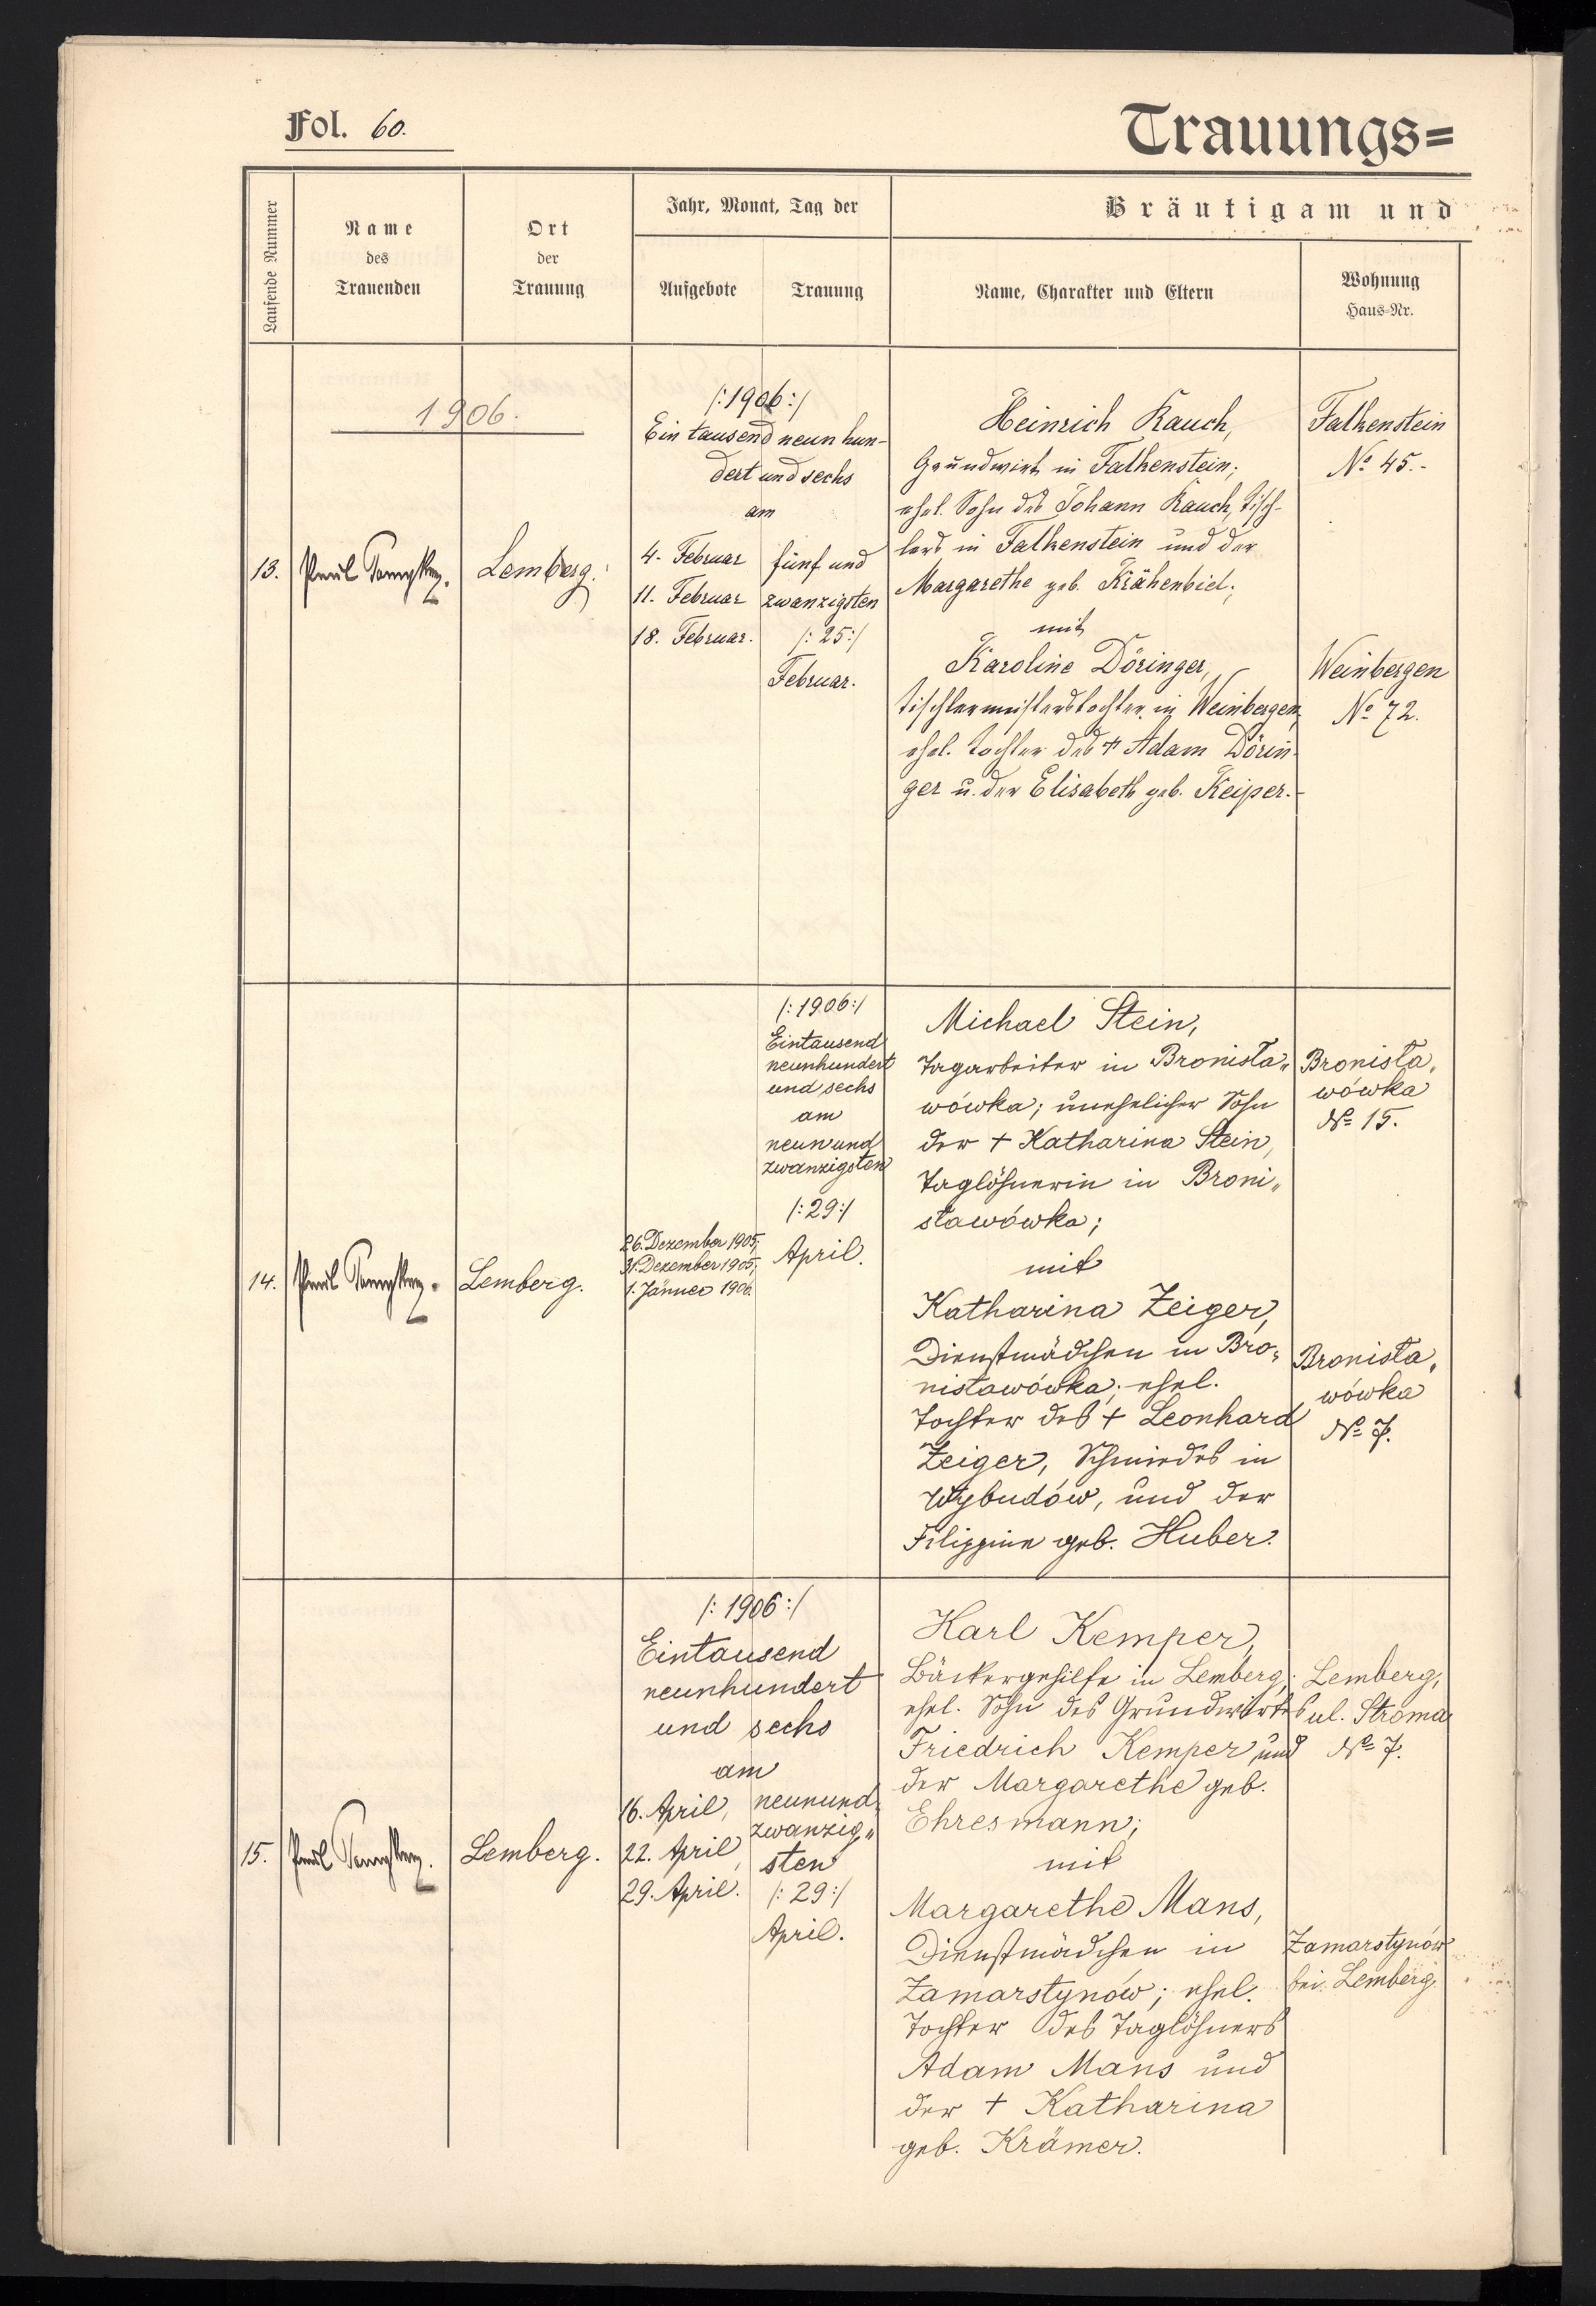 Fol. 60.
Trauungs=
Laufende Nummer
Name
des
Trauenden
Ort
der
Trauung
Jahr, Monat, Tag der
Aufgebote
Trauung
Bräutigam und
Name, Charakter und Eltern
Wohnung
Haus-Nr.
1906.
13.
Lemberg.
/:1906:/
Ein tausend neun hun-
dert und sechs
am
4. Februar
11. Februar
18. Februar.
fünf und
zwanzigsten
/:25:/
Februar.
Heinrich Rauch,
Grundwirt in Falkenstein;
ehel. Sohn des Johann Rauch, Tisch-
lers in Falkenstein und der
Margarethe geb. Krähenbiel;
mit
Karoline Döringer,
Tischlermeisterstochter in Weinbergen,
ehel. Tochter des † Adam Dörin-
ger u. der Elisabeth geb. Keiper.-
Falkenstein
No 45.-
Weinbergen
No 72.
14.
Lemberg.
26. Dezember 1905,
31. Dezember 1905,
1. Jänner 1906.
/:1906:/
Eintausend
neunhundert
und sechs
am
neunund
zwanzigsten
/:29:/
April.
Michael Stein,
Tagarbeiter in Bronisła„
wówka; unehelicher Sohn
der † Katharina Stein,
Taglöhnerin in Broni„
sławówka;
mit
Katharina Zeiger,
Dienstmädchen in Bro„
nisławówka; ehel.
Tochter des † Leonhard
Zeiger, Schmiedes in
Wybudów, und der
Filippine geb. Huber.
Bronisła„
wówka
No 15.
Bronisła„
wówka
No 7.
15.
Lemberg.
/:1906:/
Eintausend
neunhundert
und sechs
am
16. April,
22. April,
29. April.
neunund
zwanzig„
sten
/:29:/
April.
Karl Kemper,
Bäckergehilfe in Lemberg;
ehel. Sohn des Grundwirtes
Friedrich Kemper und
der Margarethe geb.
Ehresmann;
mit
Margarethe Mans,
Dienstmädchen in
Zamarstynów; ehel.
Tochter des Taglöhners
Adam Mans und
der † Katharina
geb. Krämer.
Lemberg,
ul. Stroma
No 7.
Zamarstynów
bei Lemberg.